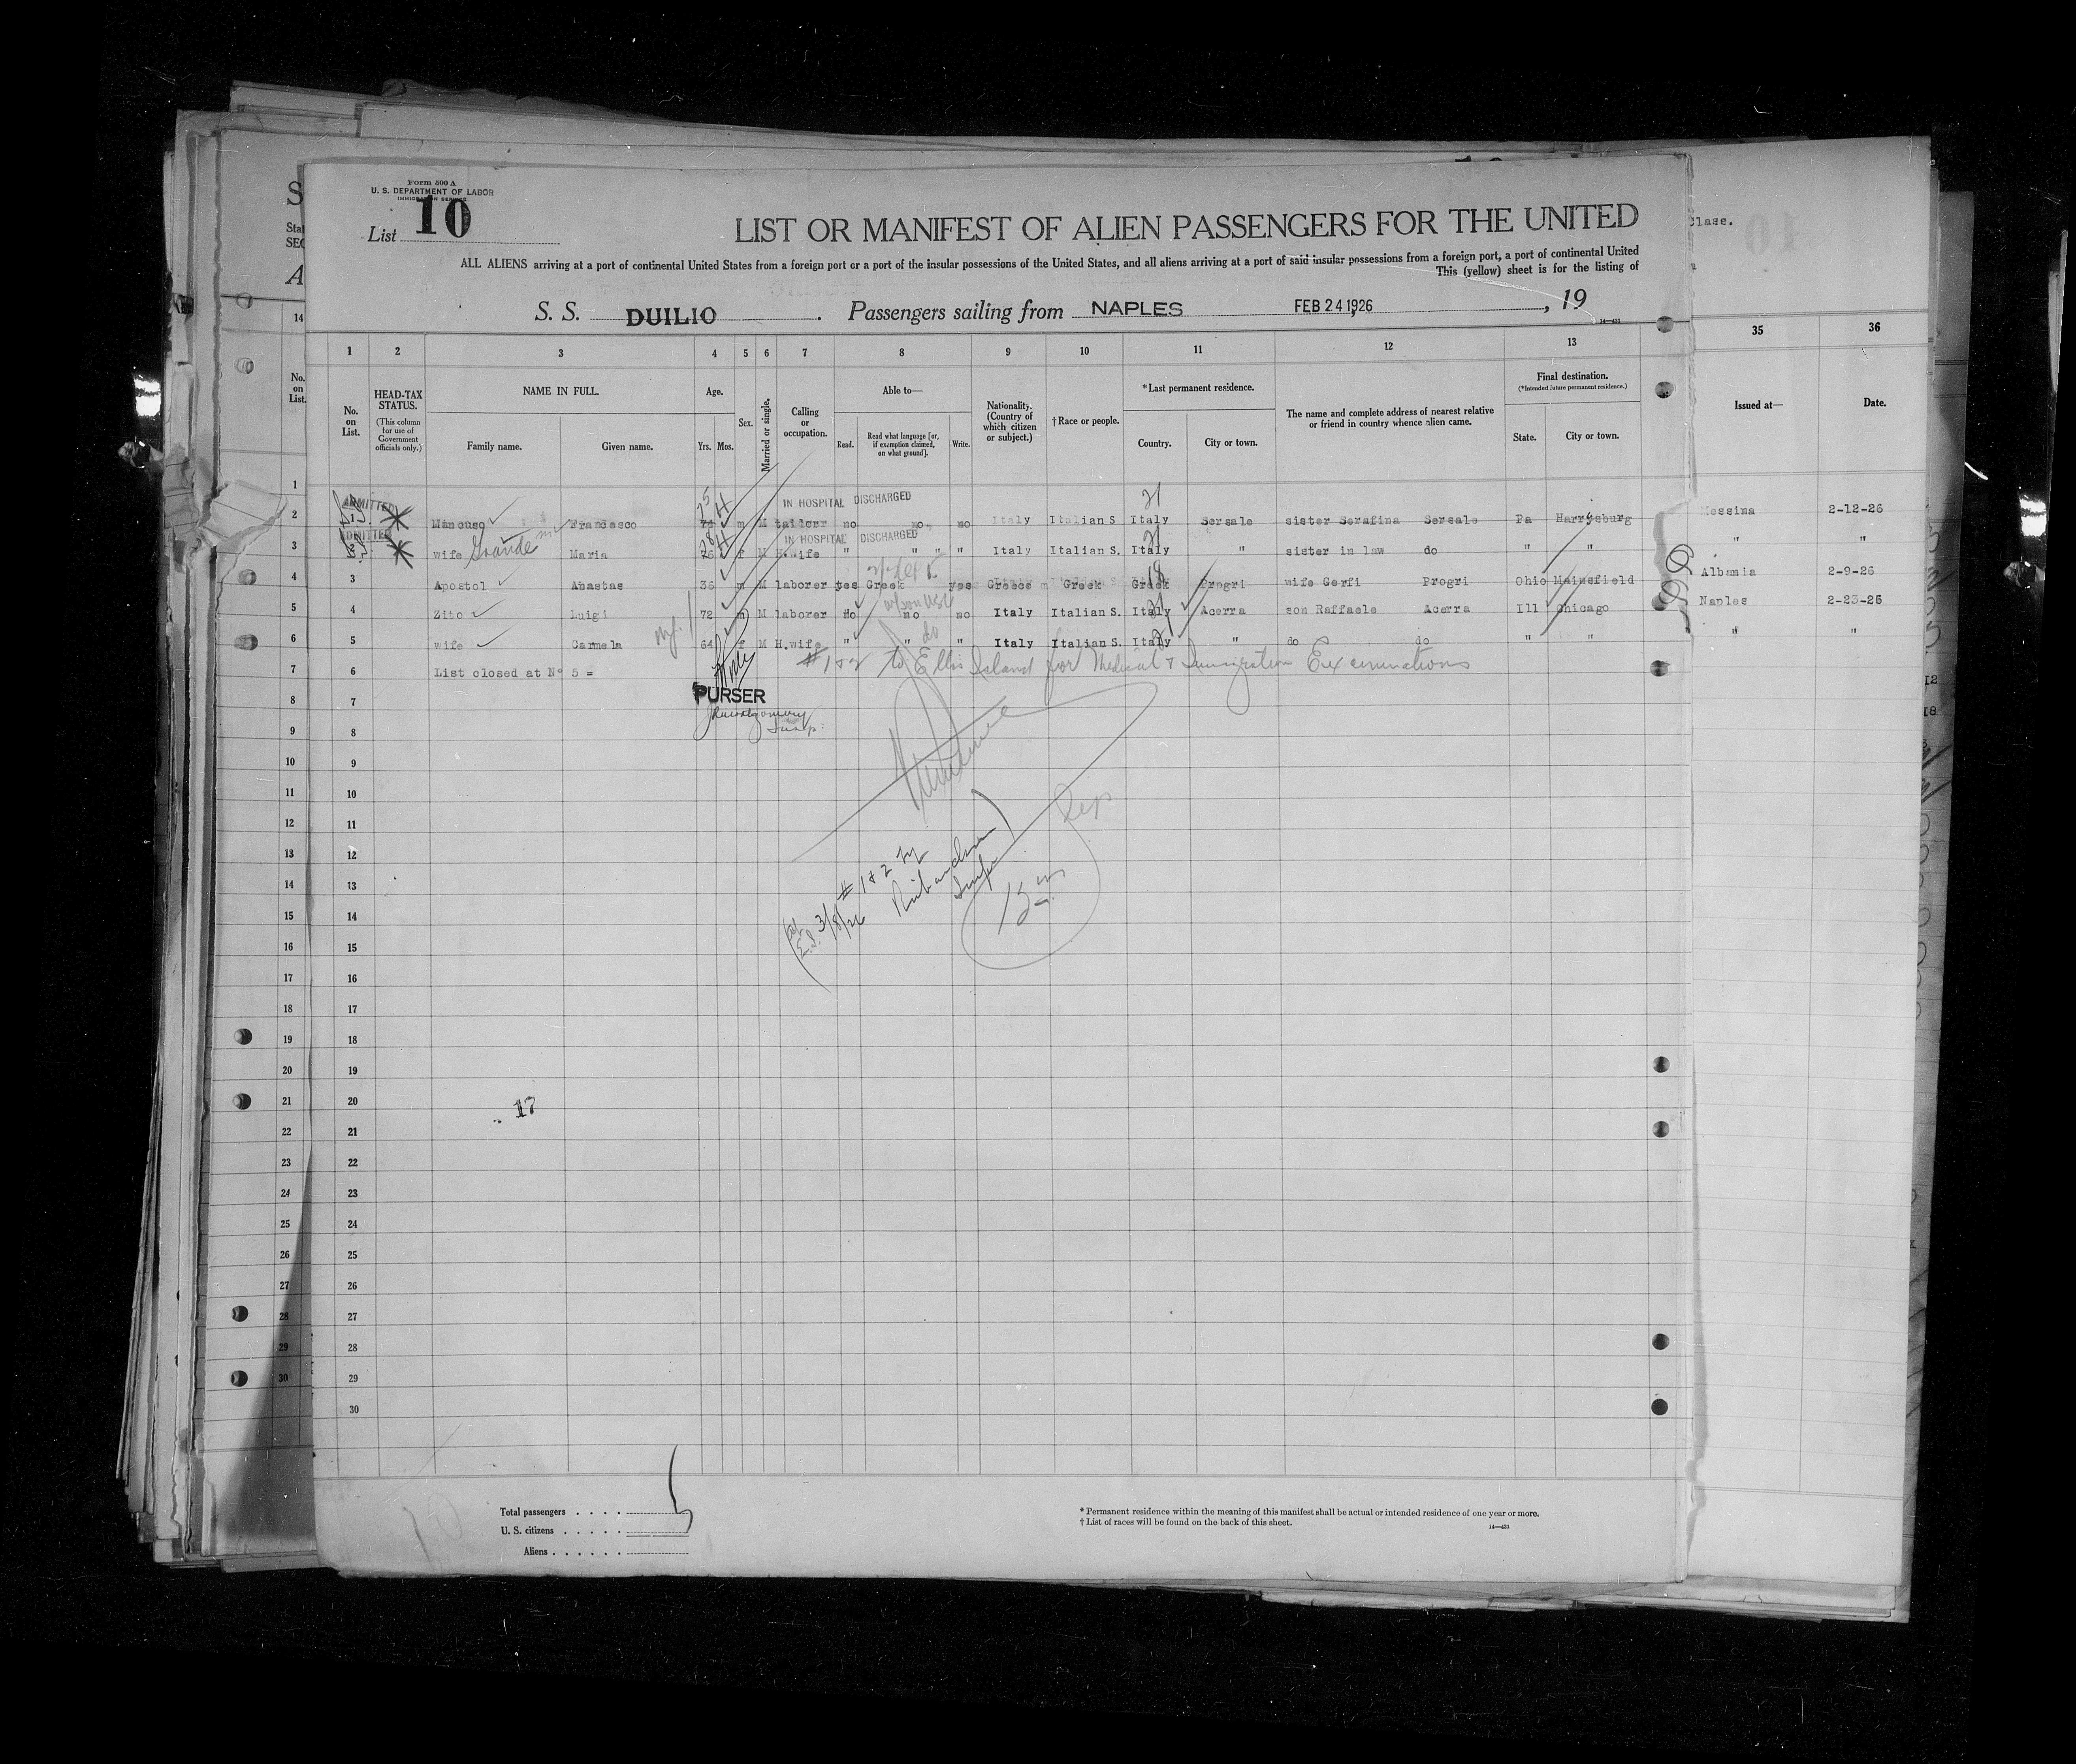 Form 500 A
U. S. DEPARTMENT OF LABOR
IMMIGRATION SERVICE
List 10
LIST OR MANIFEST OF ALIEN PASSENGERS FOR THE UNITED
Class.
ALL ALIENS arriving at a port of continental United States from a foreign port or a port of the insular possessions of the United States, and all aliens arriving at a port of said insular possessions from a foreign port, a port of continental United
This (yellow) sheet is for the listing of
S. S. DUILIO. Passengers sailing from NAPLES FEB 24 1926, 19
14—431
14 1 2 3 4 5 6 7 8 9 10 11 12 13 35 36
No. on List.
No. on List.
HEAD-TAX STATUS.
(This column for use of Government officials only.)
NAME IN FULL.
Family name. Given name.
Age.
Yrs. Mos.
Sex.
Married or single.
Calling or occupation.
Able to—
Read. Read what language [or, if exemption claimed, on what ground]. Write.
Nationality. (Country of which citizen or subject.)
†Race or people.
*Last permanent residence.
Country. City or town.
The name and complete address of nearest relative or friend in country whence alien came.
Final destination.
(*Intended future permanent residence.)
State. City or town.
Issued at— Date.
ADMITTED IN HOSPITAL DISCHARGED 21
1 Mancuso Francesco m M tailorr no no no Italy Italian S Italy Sersale sister Serafina Sersale Pa Harrysburg Messina 2-12-26
ADMITTED IN HOSPITAL DISCHARGED 21
2 wife Grande Maria 26 f M H.wife " " " " Italy Italian S. Italy " sister in law do " " " "
3 Apostol Anastas 36 m M laborer yes Greek yes Greece Greek Greek Progri wife Gerfi Progri Ohio Mainsfield Albania 2-9-26
4 Zito Luigi 72 m M laborer no no no Italy Italian S. Italy Acerra son Raffaele Acerra Ill Chicago Naples 2-23-25
do
5 wife Carmela 64 f M H.wife " " " Italy Italian S. Italy " do do " " " "
6 List closed at N° 5 =
#1&2 to Ellis Island for Medical & Immigration Examinations
PURSER
7
8
9
10
11
12
13
14
15
16
17
18
19
20
17
21
22
23
24
25
26
27
28
29
30
#1&2 by
E.I. 3/8/26 Richardson
Insp
Total passengers . . . . 5
U. S. citizens . . . . .
Aliens . . . . . .
*Permanent residence within the meaning of this manifest shall be actual or intended residence of one year or more.
†List of races will be found on the back of this sheet.
14—431